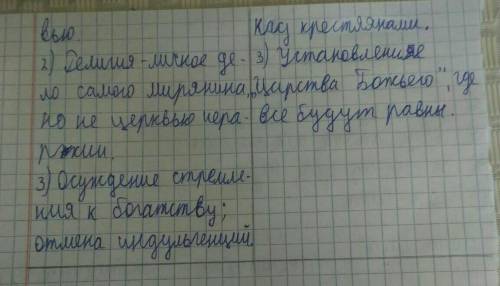 вью
2) Делигия-личное де-
ло самого мирянина,
но не церквью иера-
рхии.
3) Осуждение стремле-
ния к богатству;
отмена индульгенций
над крестянами.
3) Установление
"Царства Божьего", где
все будут равны.